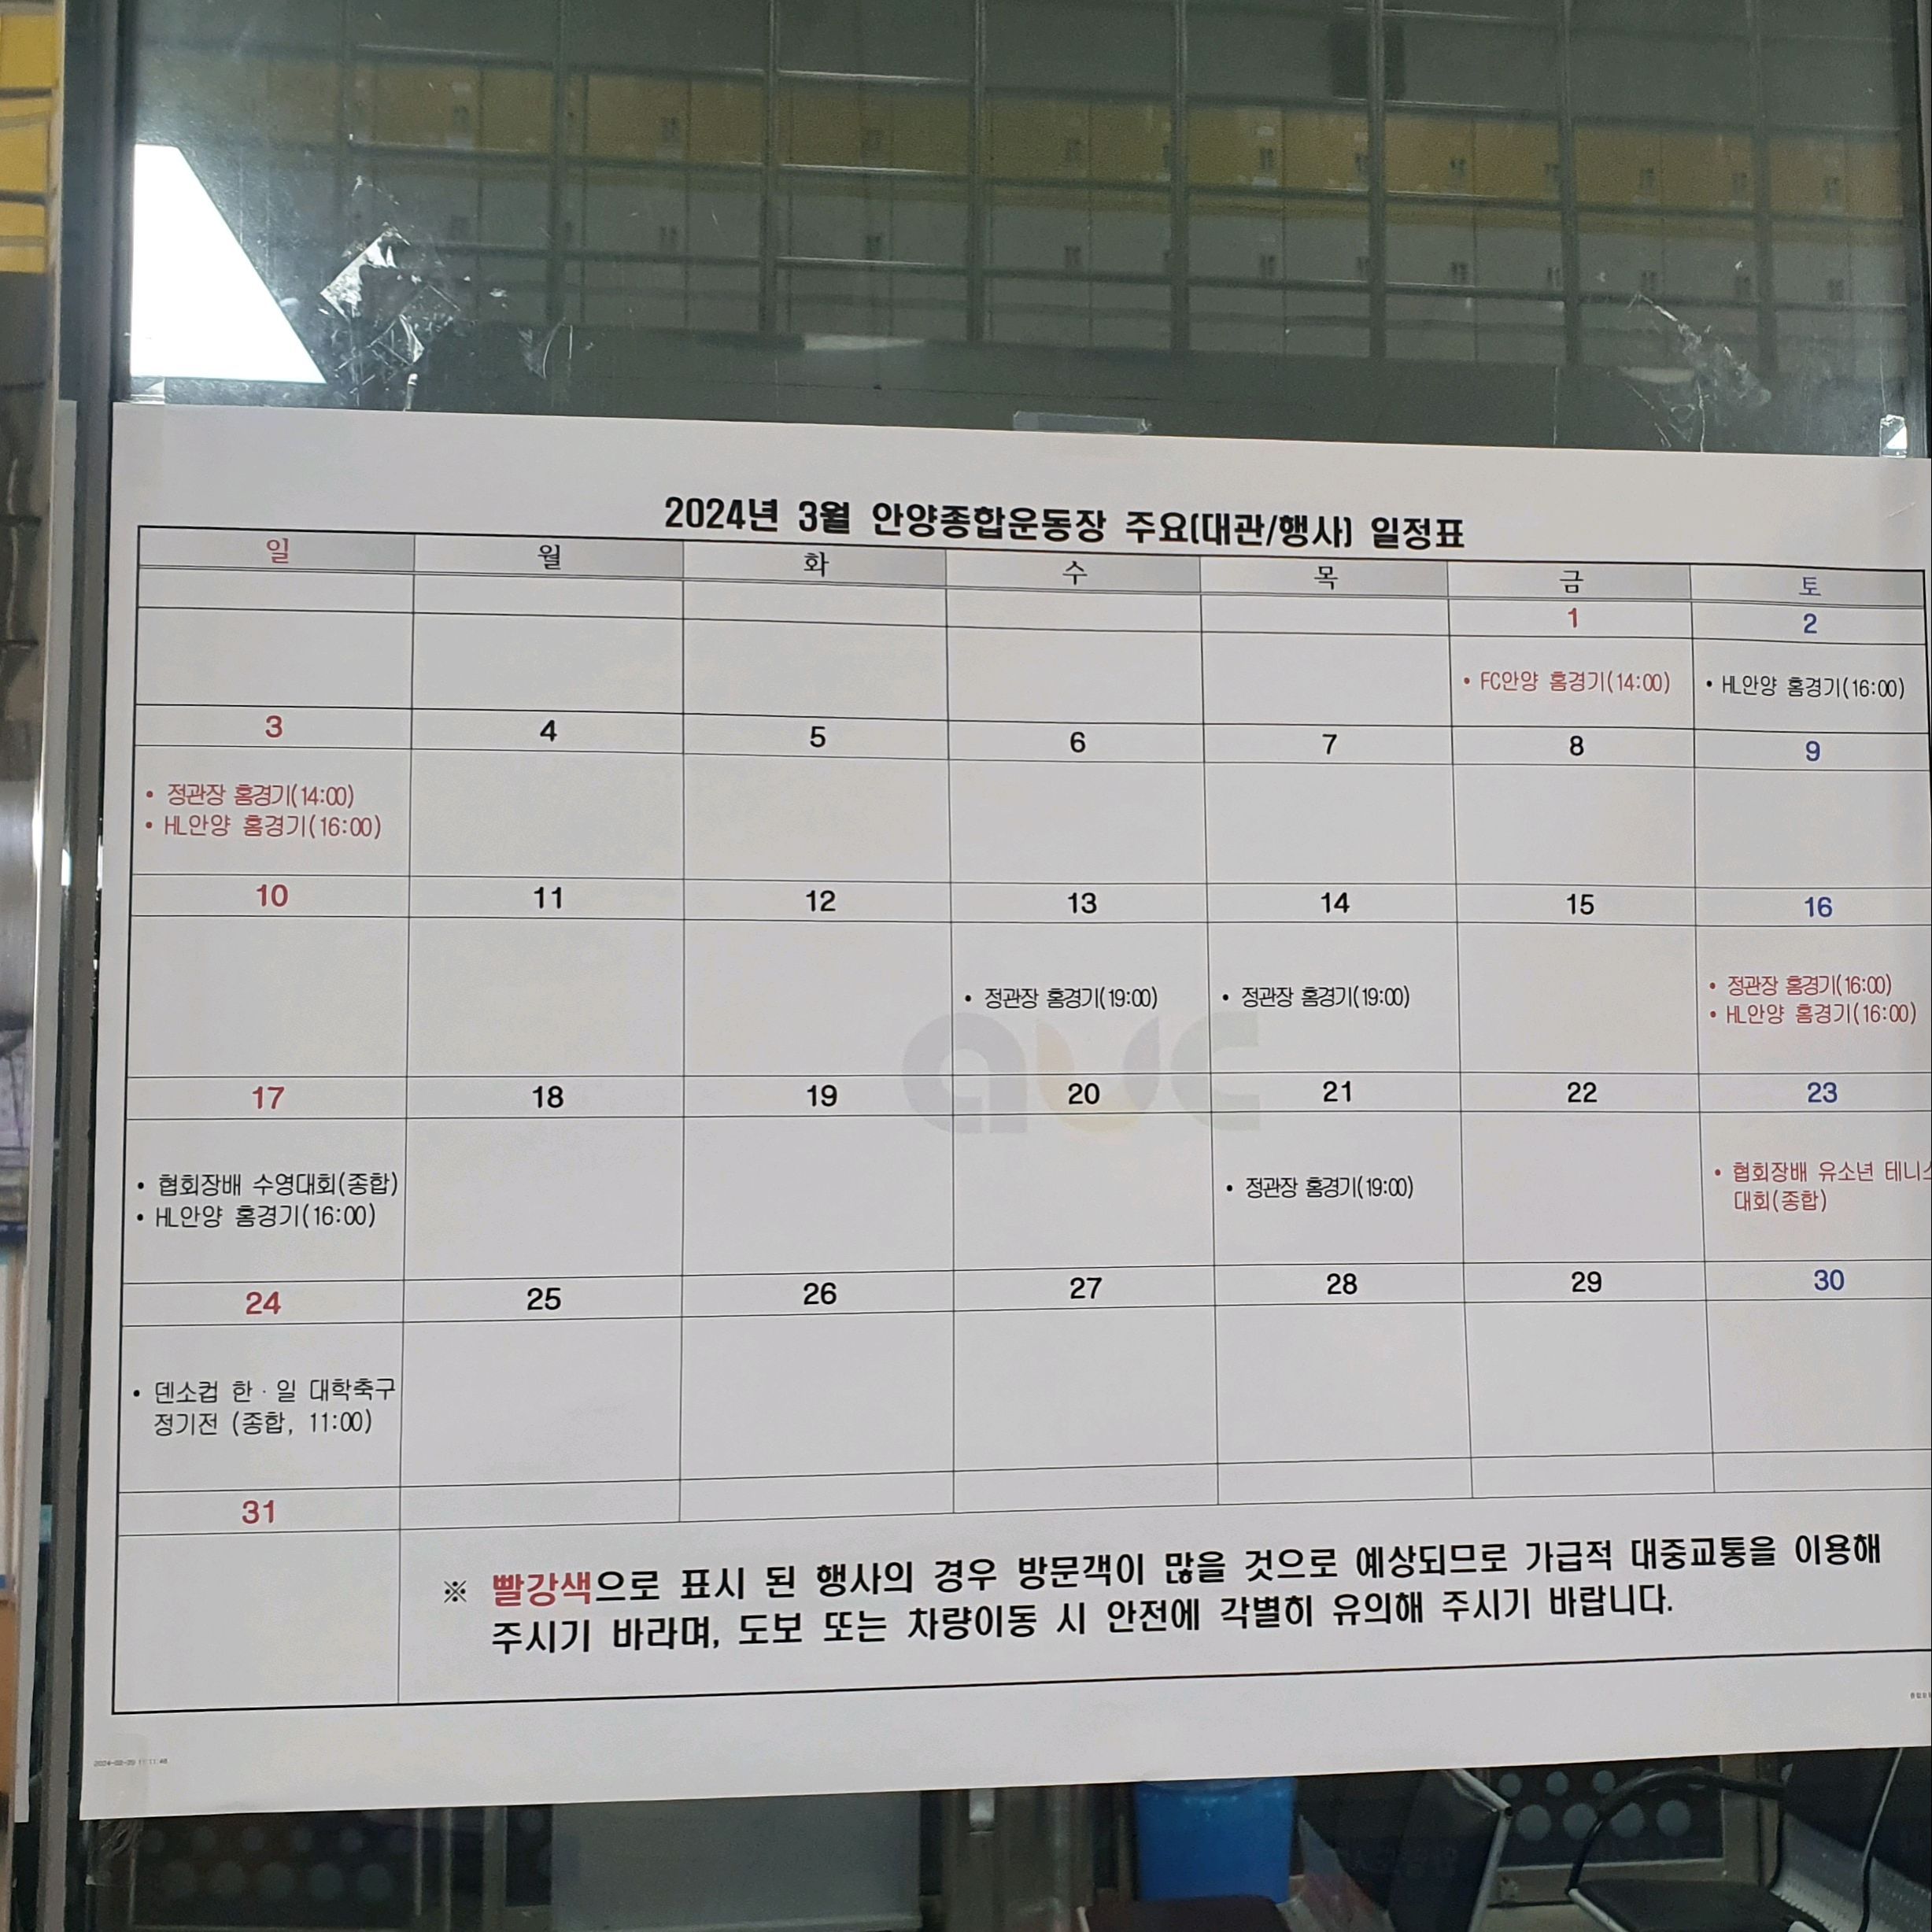 2024년 3월 안양종합운동장 주요(대관/행사) 일정표
일 월 화 수 목 금 토
1 2
• FC안양 홈경기(14:00) • HL안양 홈경기(16:00)
3 4 5 6 7 8 9
• 정관장 홈경기(14:00)
• HL안양 홈경기(16:00)
10 11 12 13 14 15 16
• 정관장 홈경기(19:00) • 정관장 홈경기(19:00) • 정관장 홈경기(16:00)
• HL안양 홈경기(16:00)
auc
17 18 19 20 21 22 23
• 협회장배 수영대회(종합)
• HL안양 홈경기(16:00)
• 정관장 홈경기(19:00)
• 협회장배 유소년 테니스
대회(종합)
24 25 26 27 28 29 30
• 덴소컵 한·일 대학축구
정기전 (종합, 11:00)
31
※ 빨강색으로 표시 된 행사의 경우 방문객이 많을 것으로 예상되므로 가급적 대중교통을 이용해
주시기 바라며, 도보 또는 차량이동 시 안전에 각별히 유의해 주시기 바랍니다.